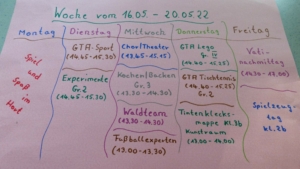 Woche vom 16.05 - 20.05.22
Montag
Dienstag
Mittwoch
Donnerstag
Freitag
Spiel
und
Spaß
im
Hort
GTA-Sport
(14.45-15.30)
Experimente
Gr.2
(14.45-15.30)
Chor/Theater
(13.45-15.15)
Kochen/Backen
Gr.3
(13.30-14.30)
Waldteam
(13.30-14.30)
Fußballexperten
(13.00-13.30)
GTA Lego
(14.40-15.25)
GTA Tischtennis
Gr.2
(14.40-15.25)
Tintenklecks-
mappe Kl.3b
Kunstraum
(13.00-14.00)
nachmittag
Spielzeug-
tag
Kl.2b